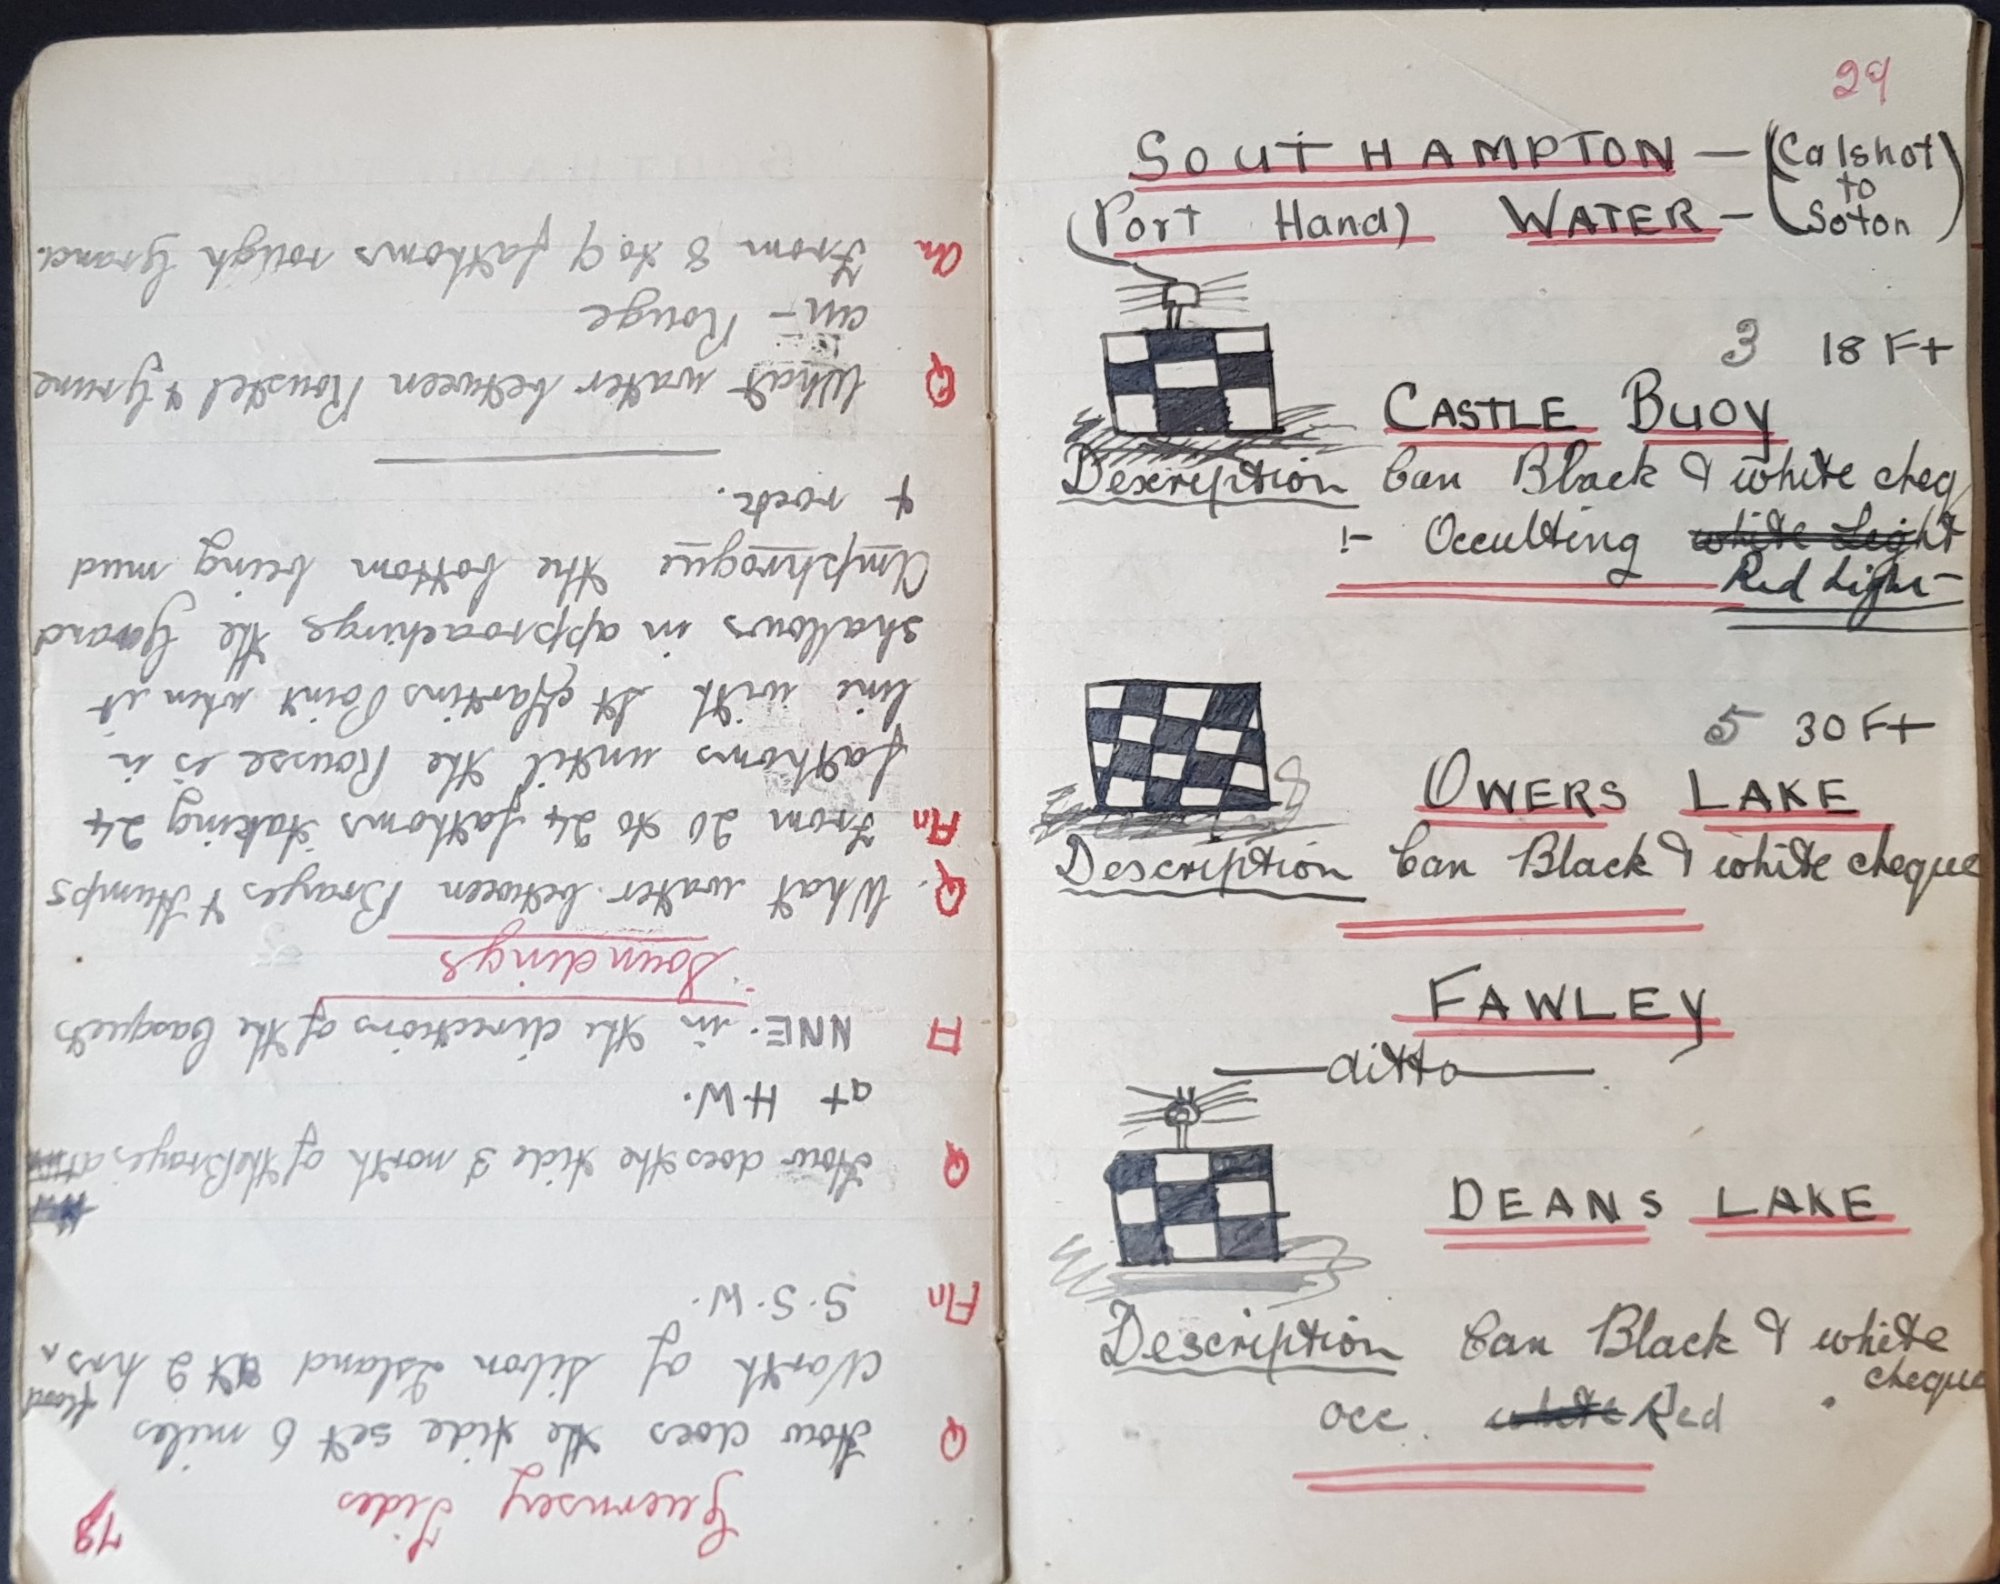 78
Guernsey Tides
Q How does the tide set 6 miles
North of Libon Island at 2 hrs flood
An S.S.W.
Q How does the tide 3 north of the Brayes at
at H.W.
A NNE. in the directions of the Casquets
Soundings
Q. What water between Brayes & Humps
An From 20 to 24 fathoms taking 24
fathoms until the Rousse is in
line with St Martins Point when it
shallows in approachings the Grand
Amphroque the bottom being mud
& rock.
Q What water between Roustel & Grune
au - Rouge
An From 8 to 9 fathoms rough Ground.
29
SOUTHAMPTON - (Calshot
(Port Hand) WATER - to Soton)
3 18 Ft
CASTLE BUOY
Description Can Black & white cheq
:- Occulting white Light
Red Light-
5 30 Ft
OWERS LAKE
Description Can Black & white cheque
FAWLEY
ditto
DEANS LAKE
Description Can Black & white
cheque
occ. white Red